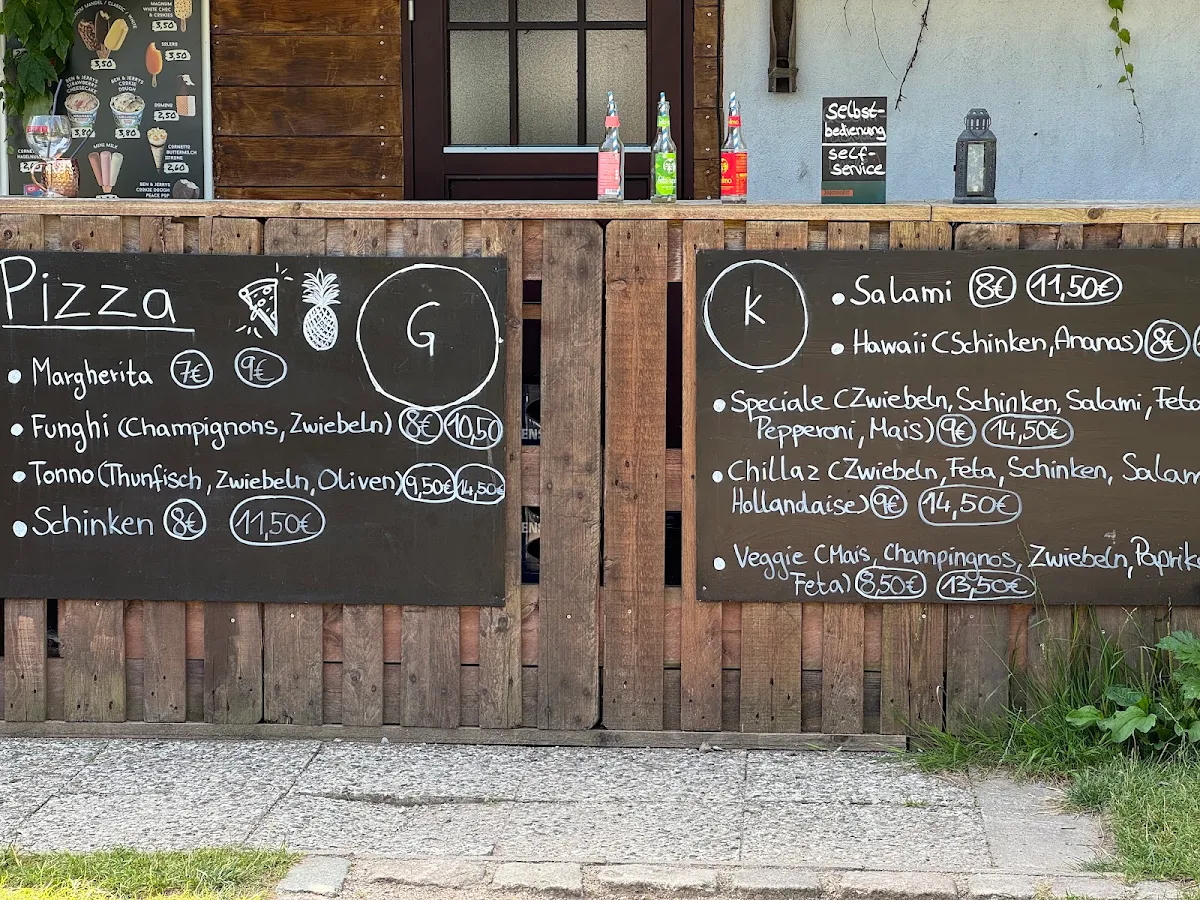 MAGNUM
WHITE CHOC
& COOKIES
3,50
3,50
SOLERO
3,50
BEN & JERRYS
STRAWBERRY
CHEESECAKE
3,80
BEN & JERRYS
COOKIE
DOUGH
3,80
DOMINO
MINI MILK
CORNETTO
BUTTERMILCH
ZITRONE
2,60
BEN & JERRYS
COOKIE DOUGH
PEACE POP
Selbst-
bedienung
self-
service
Pizza
G
• Margherita 7€ 9€
• Funghi (Champignons, Zwiebeln) 8€ 10,50
• Tonno (Thunfisch, Zwiebeln, Oliven) 9,50€ 14,50€
• Schinken 8€ 11,50€
K
• Salami 8€ 11,50€
• Hawaii (Schinken, Ananas) 8€
• Speciale (Zwiebeln, Schinken, Salami, Feta
Pepperoni, Mais) 9€ 14,50€
• Chillaz (Zwiebeln, Feta, Schinken, Salam
Hollandaise) 9€ 14,50€
• Veggie (Mais, Champingnos, Zwiebeln, Paprik
Feta) 8,50€ 13,50€